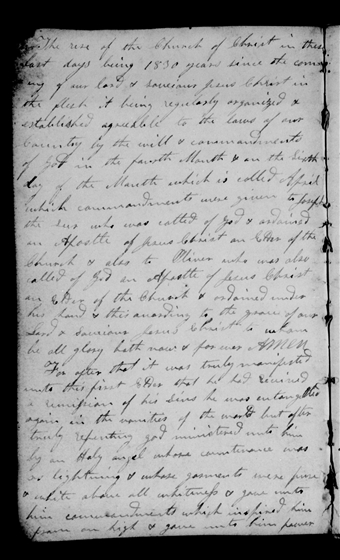 The rise of the Church of Christ in these
last days being 1830 years since the com
ing of our lord & saviour jesus Christ in
the flesh it being regularly organized &
established agreeable to the laws of our
Country by the will & commandments
of God in the fourth Month & on the Sixth
day of the Month which is called April
which commandments were given to Joseph
the seer who was called of god & ordained
an Apostle of jesus Christ an Elder of the
Church & also to Oliver who was also
called of God an Apostle of jesus Christ
an Elder of the Church & ordained under
his hand & this according to the grace of our
Lord & saviour jesus Christ to whom
be all glory both now & forever AMEN
For after that it was truly manifested
unto this first Elder that he had received
a remission of his sins he was entangled
again in the vanities of the world but after
truly repenting god ministered unto him
by an Holy angel whose countenance was
as lightning & whose garments were pure
& white above all whiteness & gave unto
him commandments which inspired him
from on high & gave unto him power